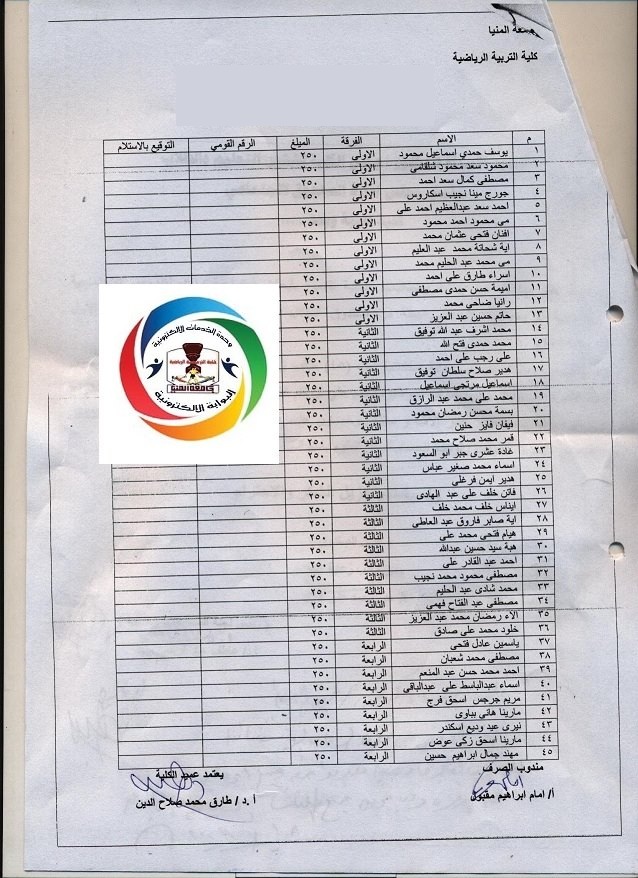 جامعة المنيا
كلية التربية الرياضية
م الاسم الفرقة المبلغ الرقم القومي التوقيع بالاستلام
١ يوسف حمدي اسماعيل محمود الاولى ٢٥٠
٢ محمود سعد محمود شلقامي الاولى ٢٥٠
٣ مصطفى كمال سعد احمد الاولى ٢٥٠
٤ جورج مينا نجيب اسكاروس الاولى ٢٥٠
٥ احمد سعد عبدالعظيم احمد على الاولى ٢٥٠
٦ مي محمود احمد محمود الاولى ٢٥٠
٧ افنان فتحى عثمان محمد الاولى ٢٥٠
٨ اية شحاتة محمد عبد العليم الاولى ٢٥٠
٩ مي محمد عبد الحليم محمد الاولى ٢٥٠
١٠ اسراء طارق على احمد الاولى ٢٥٠
١١ اميمة حسن حمدى مصطفى الاولى ٢٥٠
١٢ رانيا ضاحى محمد الاولى ٢٥٠
١٣ حاتم حسين عبد العزيز الاولى ٢٥٠
١٤ محمد اشرف عبد الله توفيق الثانية ٢٥٠
١٥ محمد حمدى فتح الله الثانية ٢٥٠
١٦ على رجب على احمد الثانية ٢٥٠
١٧ هدير صلاح سلطان توفيق الثانية ٢٥٠
١٨ اسماعيل مرتجى اسماعيل الثانية ٢٥٠
١٩ محمد على محمد عبد الرازق الثانية ٢٥٠
٢٠ بسمة محسن رمضان محمود الثانية ٢٥٠
٢١ فيفان فايز حنين الثانية ٢٥٠
٢٢ قمر محمد صلاح محمد الثانية ٢٥٠
٢٣ غادة عشرى جبر ابو السعود الثانية ٢٥٠
٢٤ اسماء محمد صغير عباس الثانية ٢٥٠
٢٥ هدير ايمن فرغلى الثانية ٢٥٠
٢٦ فاتن خلف على عبد الهادى الثانية ٢٥٠
٢٧ ايناس خلف محمد خلف الثالثة ٢٥٠
٢٨ اية صابر فاروق عبد العاطى الثالثة ٢٥٠
٢٩ هيام فتحى محمد على الثالثة ٢٥٠
٣٠ هبة سيد حسين عبدالله الثالثة ٢٥٠
٣١ احمد عبد القادر على الثالثة ٢٥٠
٣٢ مصطفى محمود محمد نجيب الثالثة ٢٥٠
٣٣ محمد شادى عبد الحليم الثالثة ٢٥٠
٣٤ مصطفى عبد الفتاح فهمى الثالثة ٢٥٠
٣٥ الاء رمضان محمد عبد العزيز الثالثة ٢٥٠
٣٦ خلود محمد على صادق الثالثة ٢٥٠
٣٧ ياسمين عادل فتحى الرابعة ٢٥٠
٣٨ مصطفى محمد شعبان الرابعة ٢٥٠
٣٩ احمد محمد حسن عبد المنعم الرابعة ٢٥٠
٤٠ اسماء عبدالباسط على عبدالباقى الرابعة ٢٥٠
٤١ مريم جرجس اسحق فرج الرابعة ٢٥٠
٤٢ مارينا هانى بباوى الرابعة ٢٥٠
٤٣ نيرى عيد وديع اسكندر الرابعة ٢٥٠
٤٤ مارينا اسحق زكى عوض الرابعة ٢٥٠
٤٥ مهند جمال ابراهيم حسين الرابعة ٢٥٠
وحدة الخدمات الالكترونية
كلية التربية الرياضية
البوابة الالكترونية
مندوب الصرف يعتمد عميد الكلية
أ/ امام ابراهيم مقبول أ.د/ طارق محمد صلاح الدين